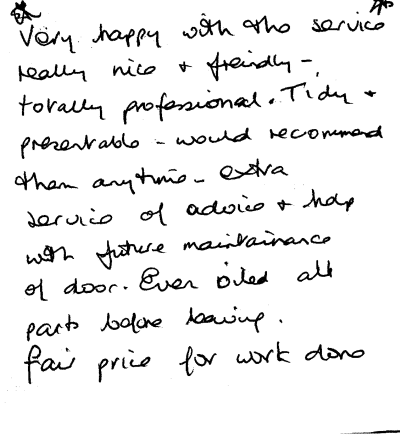 Very happy with the service
really nice + freindly -
totally professional. Tidy +
presentable - would recommend
them anytime - extra
service of advice + help
with future maintainance
of door. Even oiled all
parts before leaving.
fair price for work done